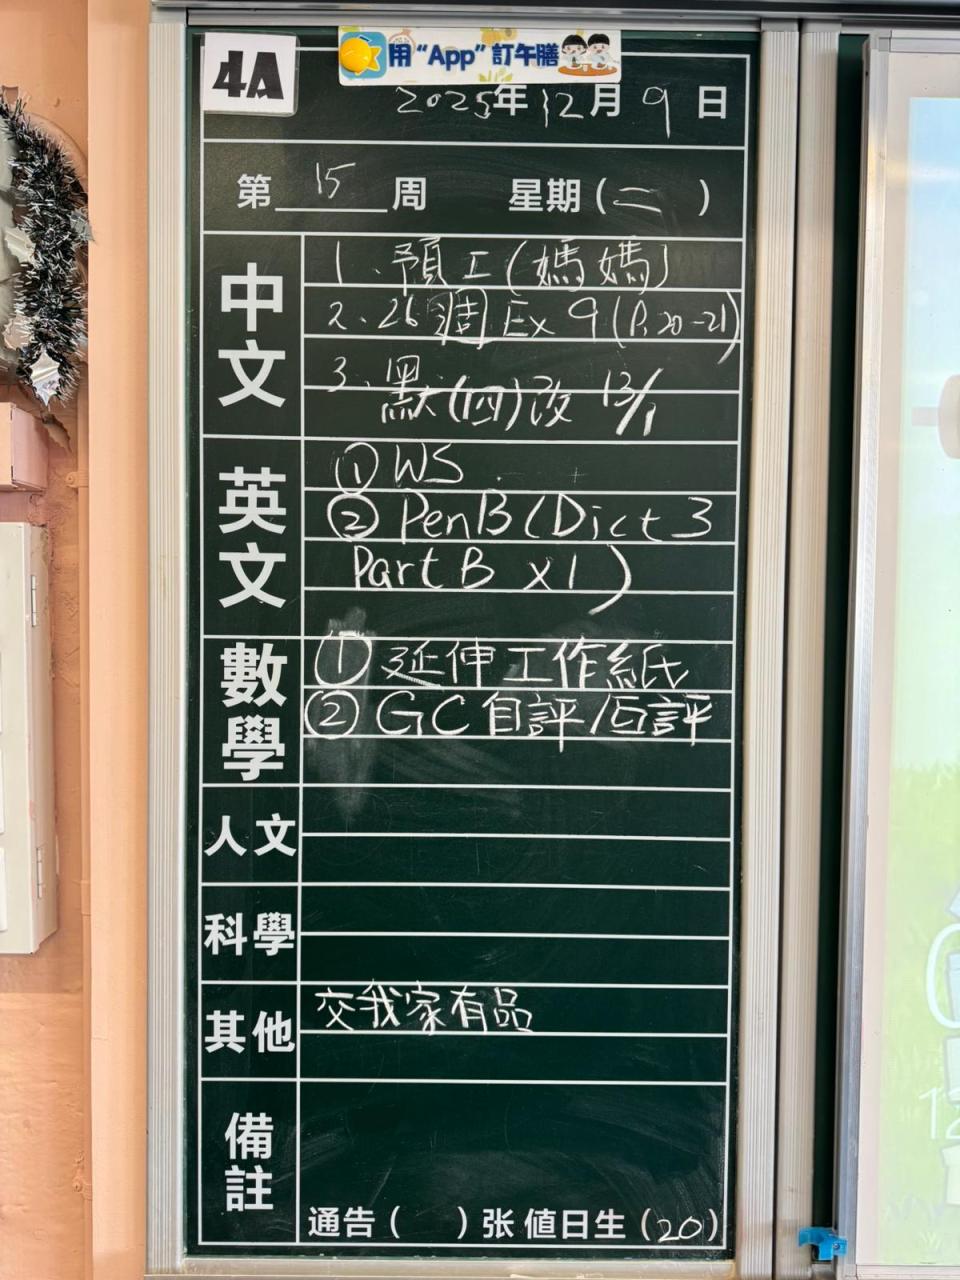 4A
用“App”訂午膳
2025年12月9日
第15周 星期(二)
中文
1、預工(媽媽)
2、26週 Ex 9 (P.20-21)
3、默(四)改 13/1
英文
① WS
② PenB (Dict 3
Part B x1)
數學
① 延伸工作紙
② GC 自評/互評
人文
科學
其他
交我家有品
備註
通告( )张 值日生(20)